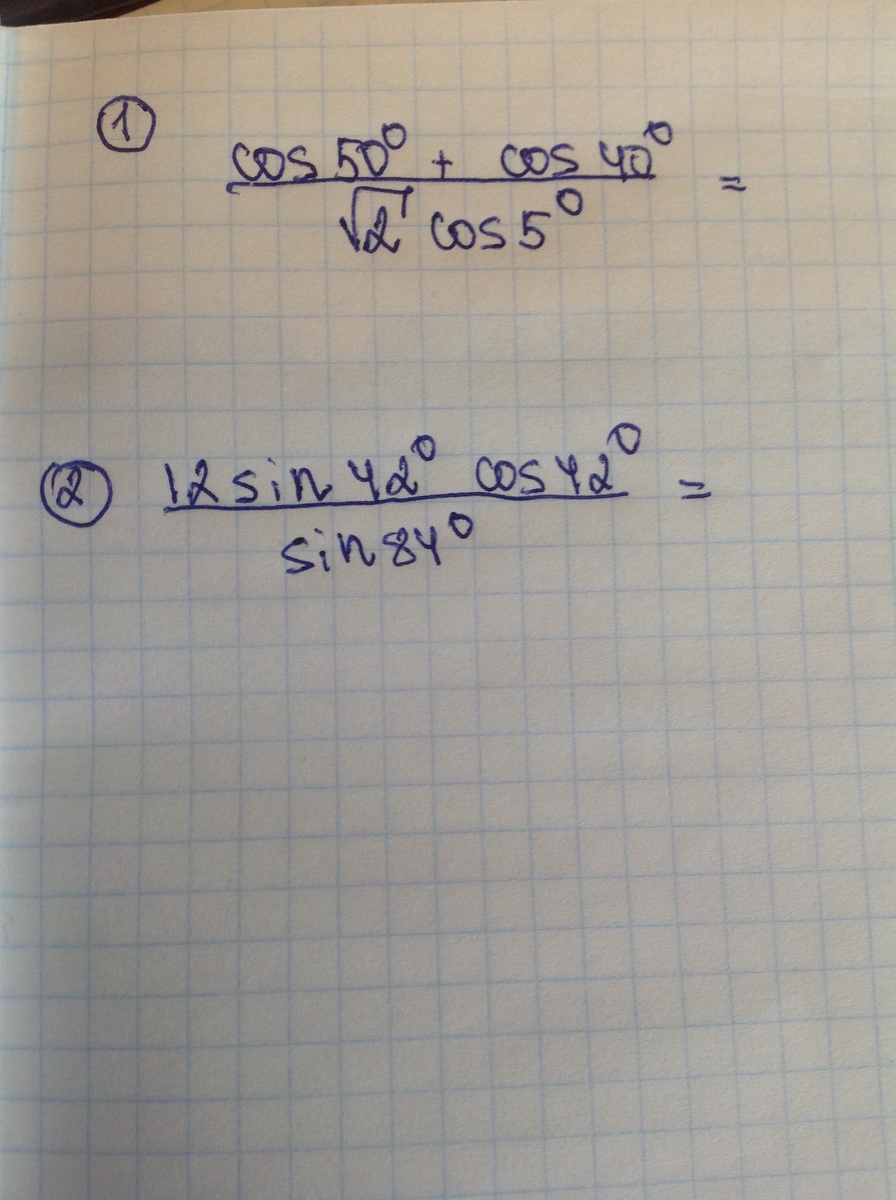 ①
cos 50° + cos 40°
√2 cos 5° =
② 12 sin 42° cos 42° =
sin 84°